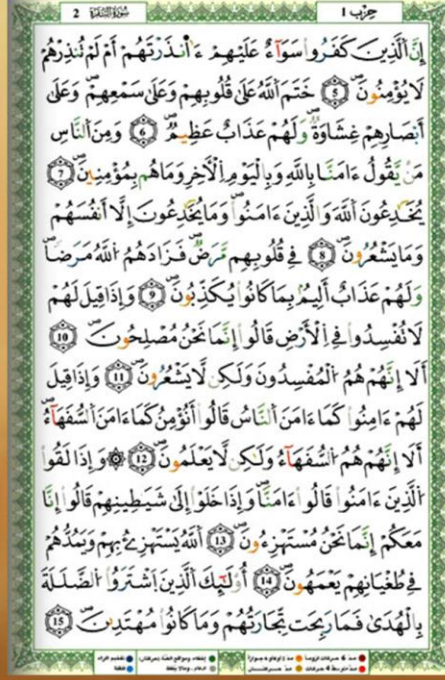 حِزْب 1
سُورَةُ الْبَقَرَة 2
إِنَّ اَ۬لذِينَ كَفَرُواْ سَوَآءٌ عَلَيْهِمُۥٓ ءَآنذَرْتَهُمُۥٓ أَمْ لَمْ تُنذِرْهُمْ
لَا يُومِنُونَ 5 خَتَمَ اَ۬للَّهُ عَلَىٰ قُلُوبِهِمْ وَعَلَىٰ سَمْعِهِمْ وَعَلَىٰٓ
أَبْصٰ۪رِهِمْ غِشَٰوَةٌ وَلَهُمْ عَذَابٌ عَظِيمٌ 6 وَمِنَ اَ۬لنَّاسِ
مَنْ يَّقُولُ ءَامَنَّا بِاللَّهِ وَبِالْيَوْمِ اِ۬لَاخِرِ وَمَا هُم بِمُومِنِينَ 7
يُخَٰدِعُونَ اَ۬للَّهَ وَالذِينَ ءَامَنُواْ وَمَا يُخَٰدِعُونَ إِلَّآ أَنفُسَهُمْ
وَمَا يَشْعُرُونَ 8 فِے قُلُوبِهِم مَّرَضٌ فَزَادَهُمُ اُ۬للَّهُ مَرَضاً
وَلَهُمْ عَذَابٌ أَلِيمٌ بِمَا كَانُواْ يُكَذِّبُونَ 9 وَإِذَا قِيلَ لَهُمْ
لَا تُفْسِدُواْ فِے اِ۬لَارْضِ قَالُوٓاْ إِنَّمَا نَحْنُ مُصْلِحُونَ 10
أَلَآ إِنَّهُمْ هُمُ اُ۬لْمُفْسِدُونَ وَلَٰكِن لَّا يَشْعُرُونَ 11 وَإِذَا قِيلَ
لَهُمُۥٓ ءَامِنُواْ كَمَآ ءَامَنَ اَ۬لنَّاسُ قَالُوٓاْ أَنُومِنُ كَمَآ ءَامَنَ اَ۬لسُّفَهَآءُ
أَلَآ إِنَّهُمْ هُمُ اُ۬لسُّفَهَآءُ وَلَٰكِن لَّا يَعْلَمُونَ 12 ۞ وَإِذَا لَقُواْ
اُ۬لذِينَ ءَامَنُواْ قَالُوٓاْ ءَامَنَّا وَإِذَا خَلَوِاْ اِلَىٰ شَيَٰطِينِهِمْ قَالُوٓاْ إِنَّا
مَعَكُمُۥٓ إِنَّمَا نَحْنُ مُسْتَهْزِءُونَ 13 اَ۬للَّهُ يَسْتَهْزِۓُ بِهِمْ وَيَمُدُّهُمْ
فِے طُغْيَٰنِهِمْ يَعْمَهُونَ 14 أُوْلَٰٓئِكَ اَ۬لذِينَ اَ۪شْتَرَوُاْ اُ۬لضَّلَٰلَةَ
بِالْهُدَىٰ فَمَا رَبِحَت تِّجَٰرَتُهُمْ وَمَا كَانُواْ مُهْتَدِينَ 15